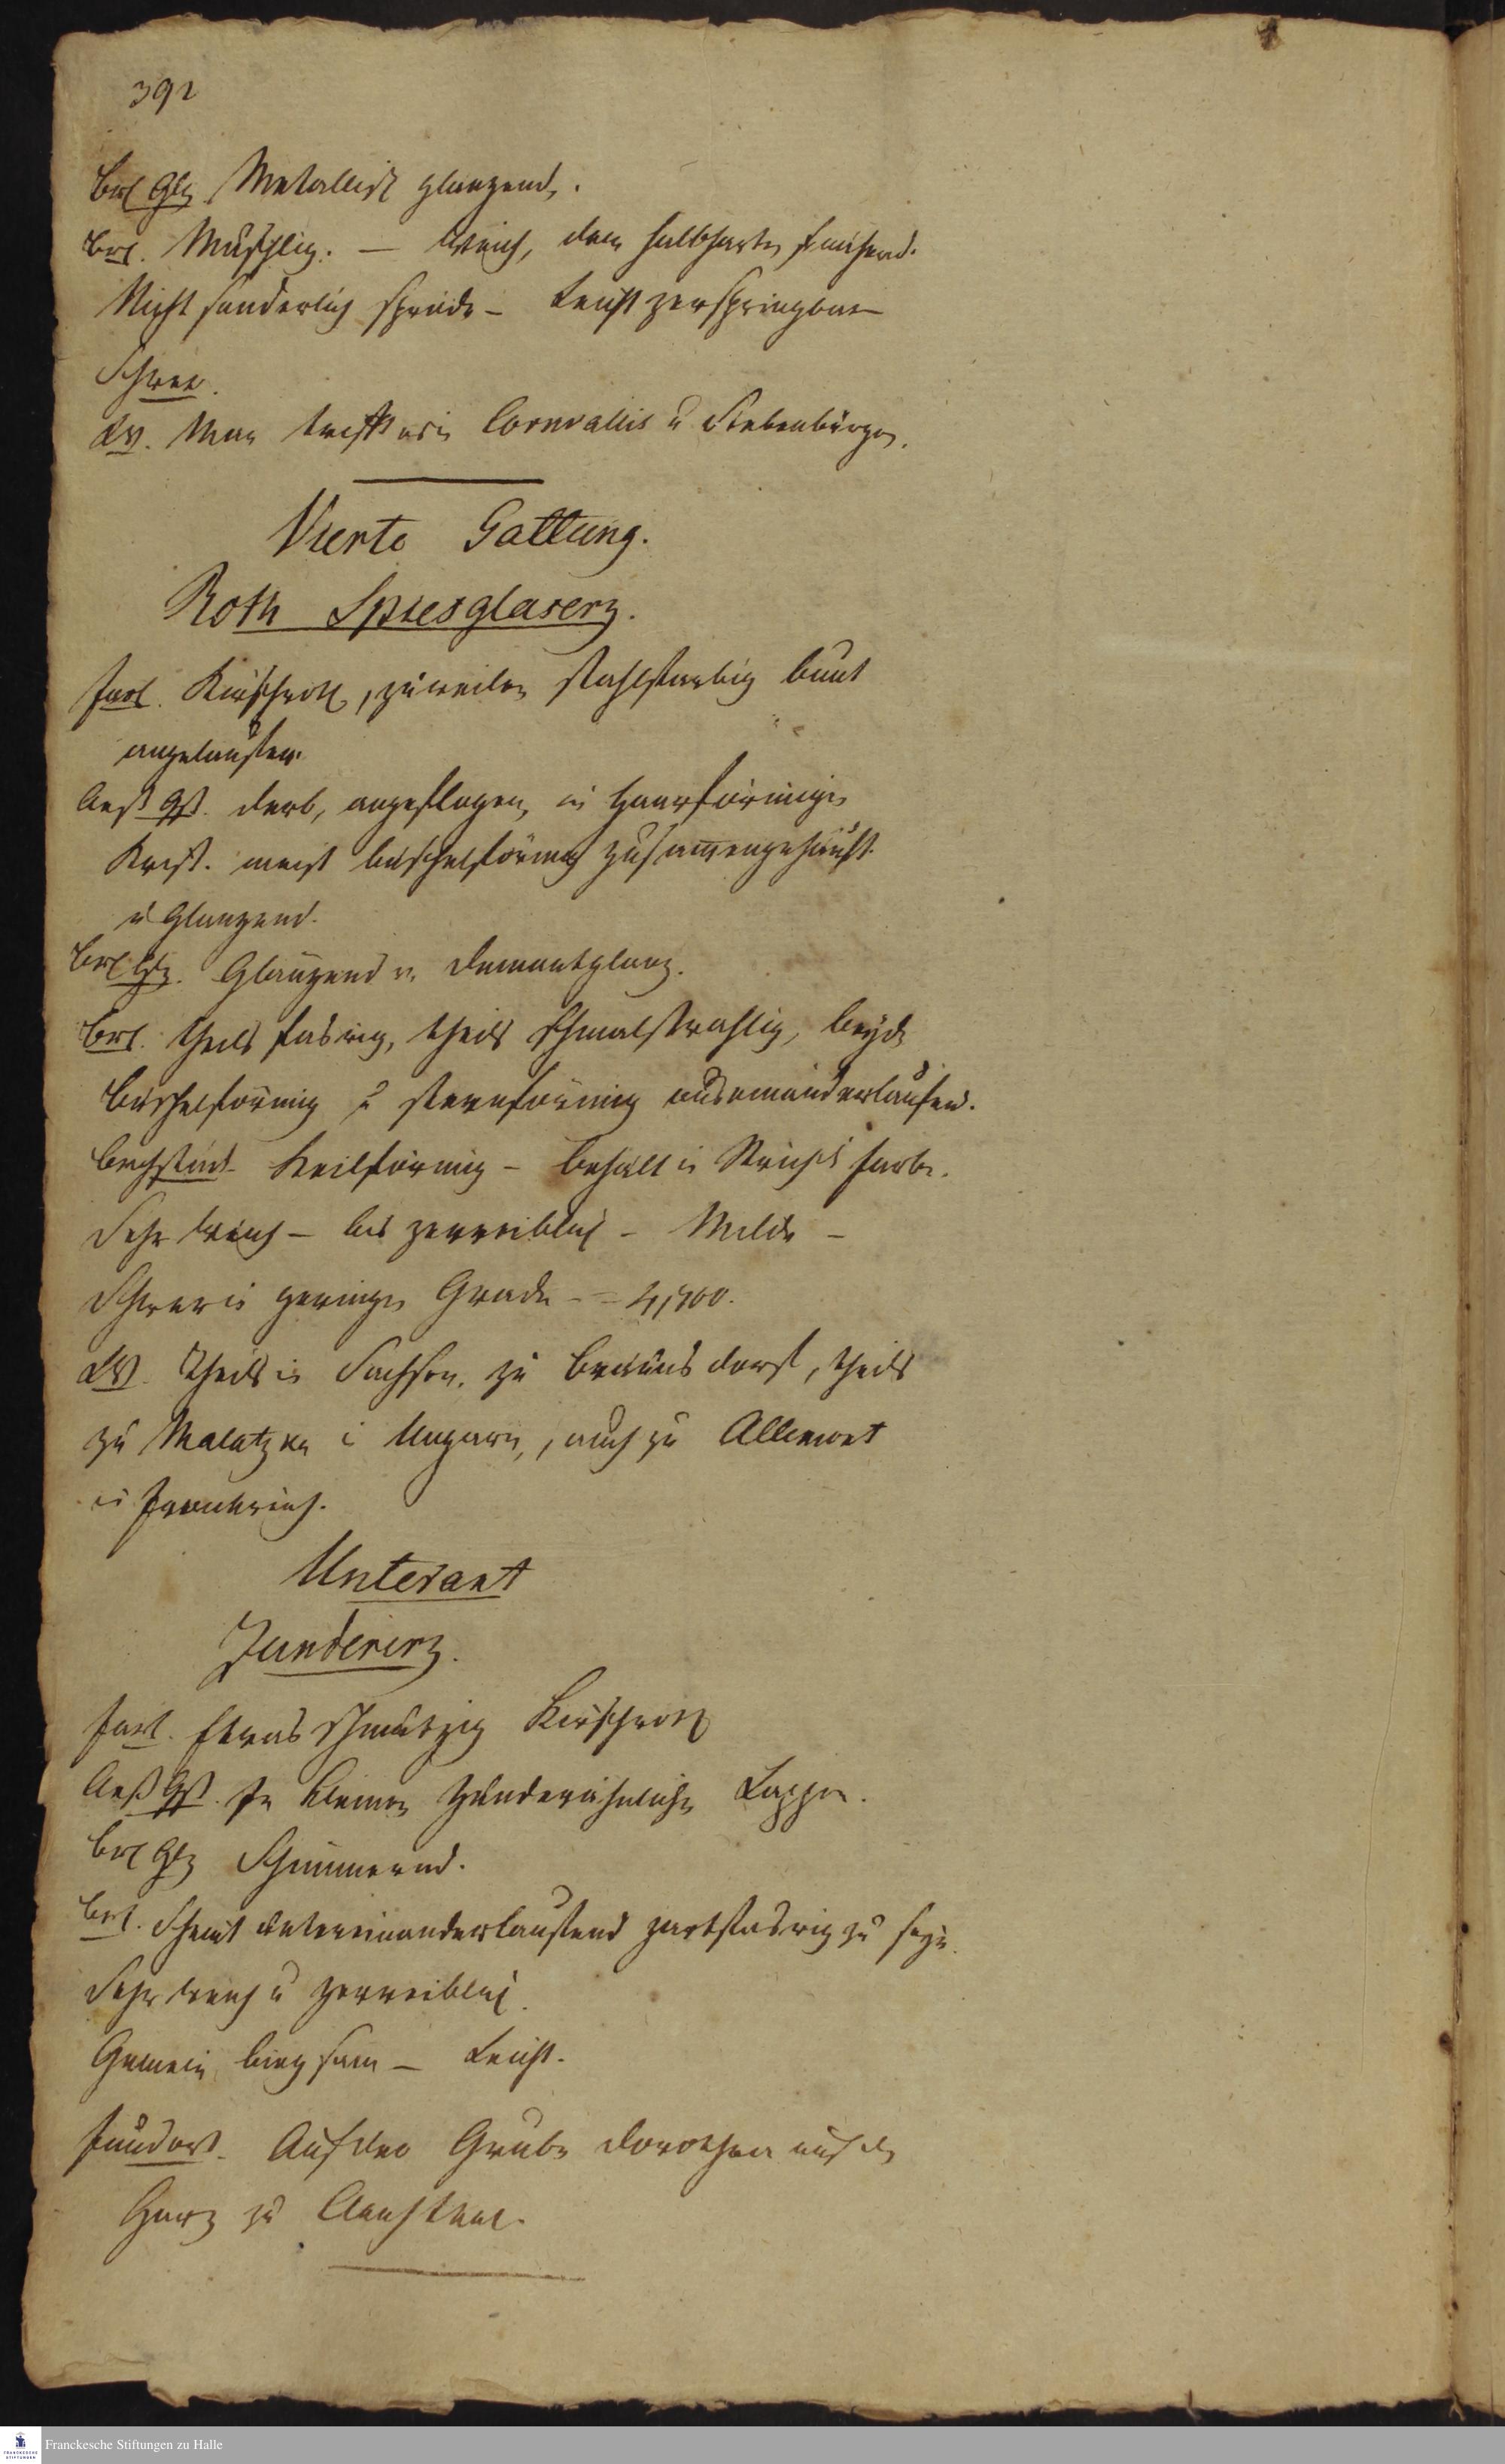 392
Br Glz. Metallisch glanzend.
Br. Muschlig. — Weich, dem halbharten sich nähernd.
Nicht sonderlich spröde – Leicht zerspringbar –
Schwer.
LW. Man trifft es in Cornvallis u Siebenbürgen.
Vierte Gattung.
Roth Spiesglaserz.
Farb. Kirschroth, zuweilen stahlfarbig bunt
angelaufen
Aeß Gst. derb, angeflogen, in haarförmigen
Krist. meist büschelförmig zusammengehäuft
u Glanzend.
Br Glz. Glänzend v. Demantglanz.
Br. theils fasrig, theils schmalstrahlig, beyde
büschelförmig u sternförmig auseinanderlaufend.
Brchstück Keilförmig – behält im Strich d Farbe.
Sehr weich – bis zerreiblich – Milde –
Schwer in geringen Grade – = 4,700.
LW. theils in Sachsen, zu Bräunsdorf, theils
zu Malatzka in Ungarn, auch zu Allemont
in Frankreich.
Unterart
Zundererz.
Farb. Etwas schmutzig Kirschroth
Aeß Gst. In kleinen zunderähnlichen Lappen.
Br Glz Schimmernd.
Br. Scheint untereinanderlaufend zartfasrig zu seyn.
Sehr weich u zerreiblich.
Gemein biegsam – Leicht.
Fundort. Auf der Grube Dorothea auf d
Harz zu Clausthal.
Franckesche Stiftungen zu Halle